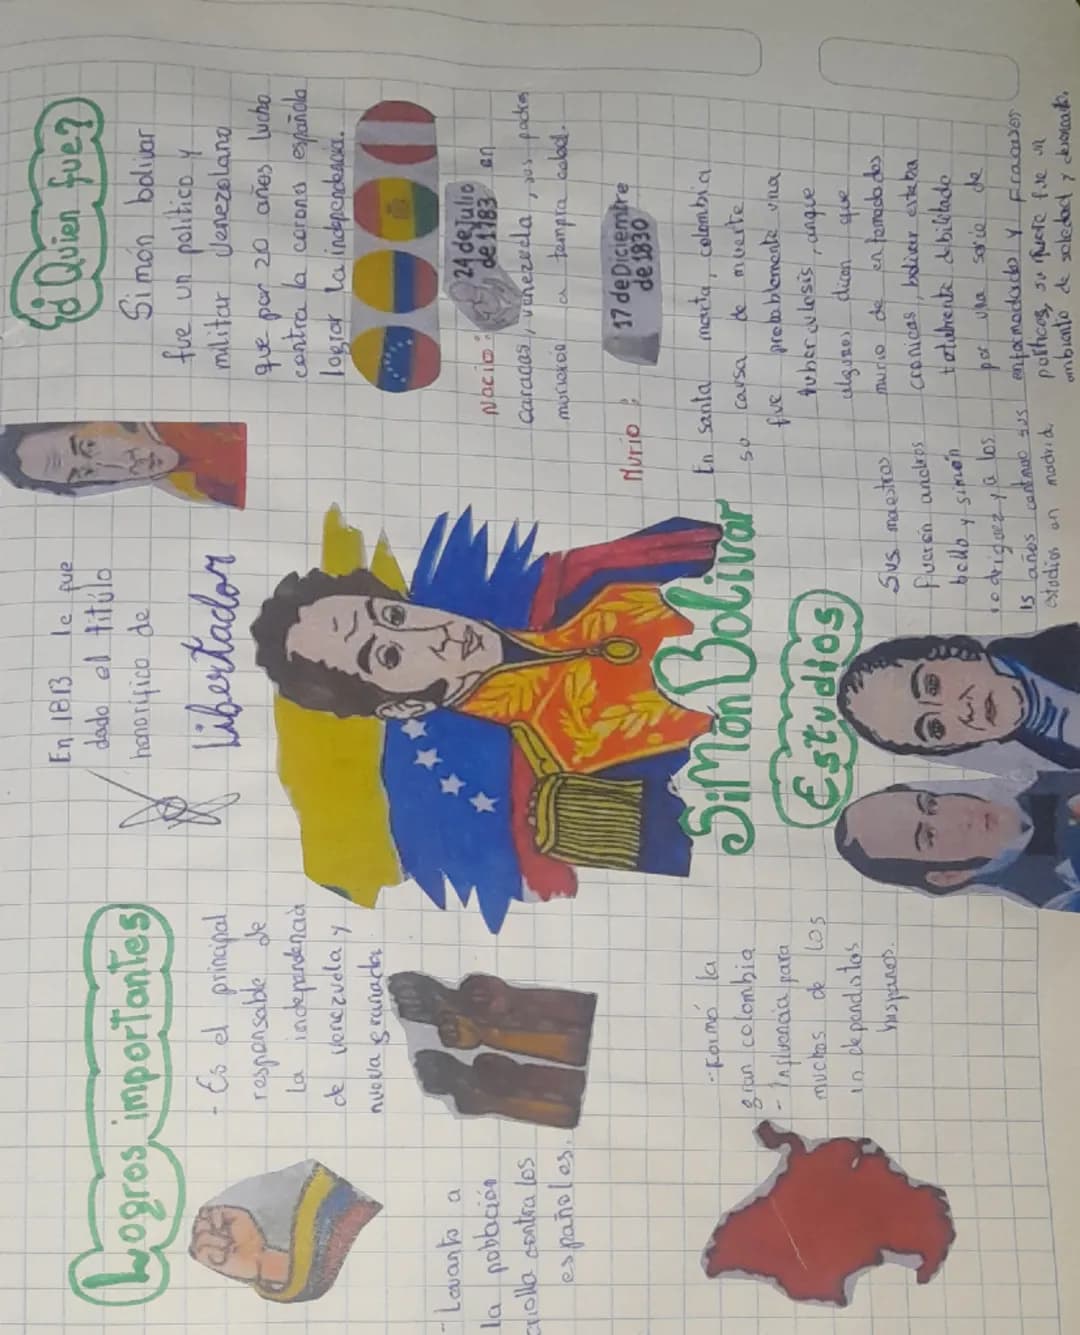 Logros importantes
- Es el principal
responsable de
La independencia
de Venezuela y
nueva granada.
- Levanto a
la población
criolla contra los
españoles.
- Formó la
gran colombia
- Influencia para
muchos de los
independentos
hispanos.
En 1813 le fue
dado el titúlo
honorifico de
Libertador
Simón Bolivar
Estudios
Sus maestros
fuerón andres
bello y simón
rodriguez y a los
15 años continuo sus
estudios en madrid.
¿Quien fue?
Simón bolivar
fue un politico y
militar venezolano
que por 20 años lucho
contra la corona española
lograr la independencia.
Nacio: 24 de Julio
de 1783 en
caracas, venezuela, sus padres
murieron a tempra edad.
Murio: 17 de Diciembre
de 1830
En santa marta, colombia
su causa de muerte
fue probablemente una
tuberculosis, anque
algunos dicen que
murio de enfermedades
cronicas, bolivar estaba
totalmente debilitado
por una serie de
enformedades y fracasos
politicos, su muerte fue un
ambiente de soledad y desencanto.